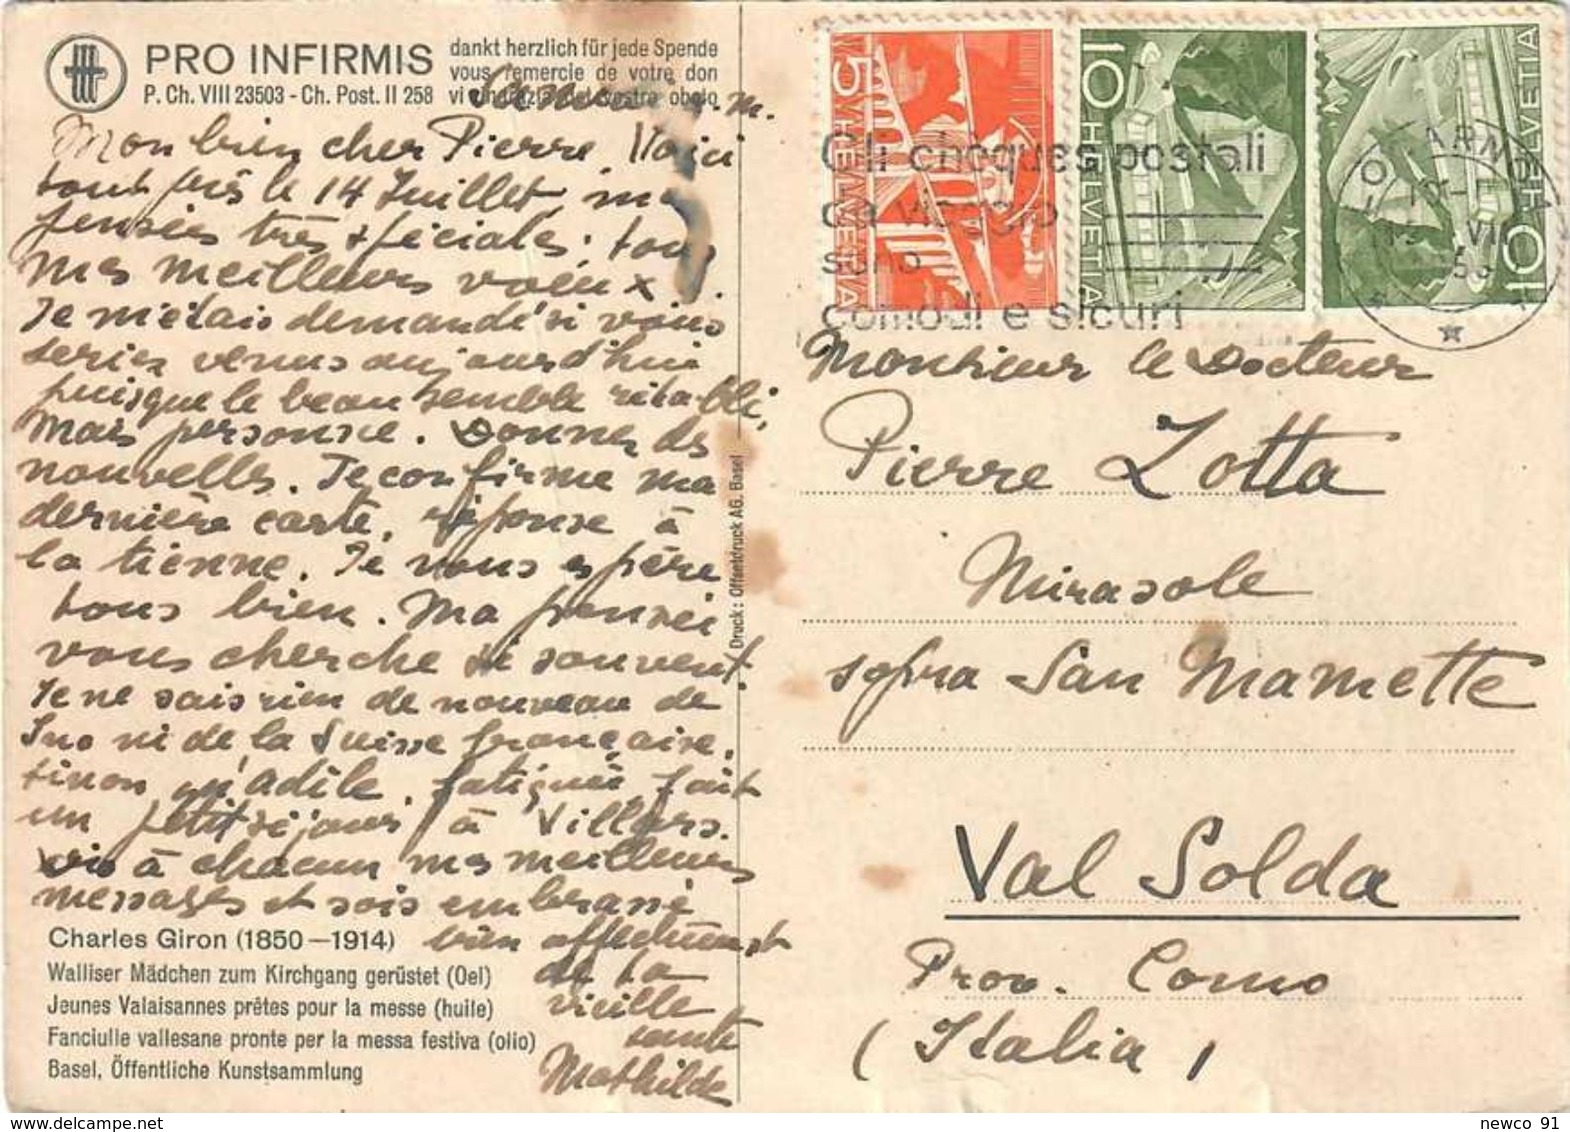 PRO INFIRMIS
P. Ch. VIII 23503 - Ch. Post. II 258
dankt herzlich für jede Spende
vous remercie de votre don
vi ringrazia del vostro obolo
Mon bien cher Pierre, Voici
tout près le 14 Juillet, mes
pensées très spéciales, tous
mes meilleurs voeux.
Je m'étais demandé si vous
seriez venus aujourd'hui
puisque le beau semble rétabli,
Mais personne. Donnez des
nouvelles. Je confirme ma
dernière carte, réponse à
la tienne. Je vous espère
tous bien. Ma pensée
vous cherche si souvent.
Je ne sais rien de nouveau de
Ino ni de la Suisse française,
sinon qu'Adile, fatiguée, fait
un petit séjour à Villars.
à chacun mes meilleurs
messages et sois embrassé
bien affectueusement
de ta
vieille
tante
Mathilde
Charles Giron (1850—1914)
Walliser Mädchen zum Kirchgang gerüstet (Oel)
Jeunes Valaisannes prêtes pour la messe (huile)
Fanciulle vallesane pronte per la messa festiva (olio)
Basel, Öffentliche Kunstsammlung
Druck: Offsetdruck AG. Basel
5 HELVETIA
10 HELVETIA
10 HELVETIA
Gli chèques postali
sono
comodi e sicuri
Monsieur le Docteur
Pierre Zotta
Mirasole
sopra San Mamette
Val Solda
Prov. Como
(Italia)
newco 91